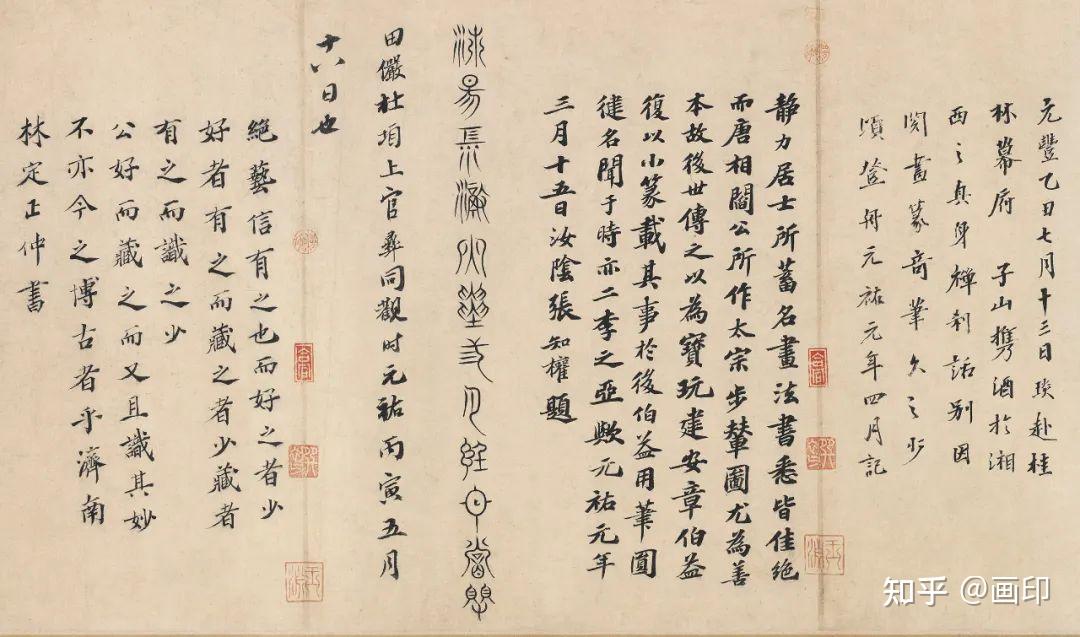 元豐乙丑七月十三日琰赴桂
林幕府 子山攜酒於湘
西之真身禪刹話別因
閱畫篆奇筆久之少
頃登舟元祐元年四月記
静力居士所蓄名畫法書悉皆佳絶
而唐相閻公所作太宗步輦圖尤為善
本故後世傳之以為寶玩建安章伯益
復以小篆載其事於後伯益用筆圓
健名聞于時亦二李之亞歟元祐元年
三月十五日汝陰張知權題
田儼杜垍上官彝同觀时元祐丙寅五月
十八日也
絶藝信有之也而好之者少
好者有之而藏之者少藏者
有之而識之少
公好而藏之而又且識其妙
不亦今之博古者乎濟南
林定正仲書
知乎 @画印